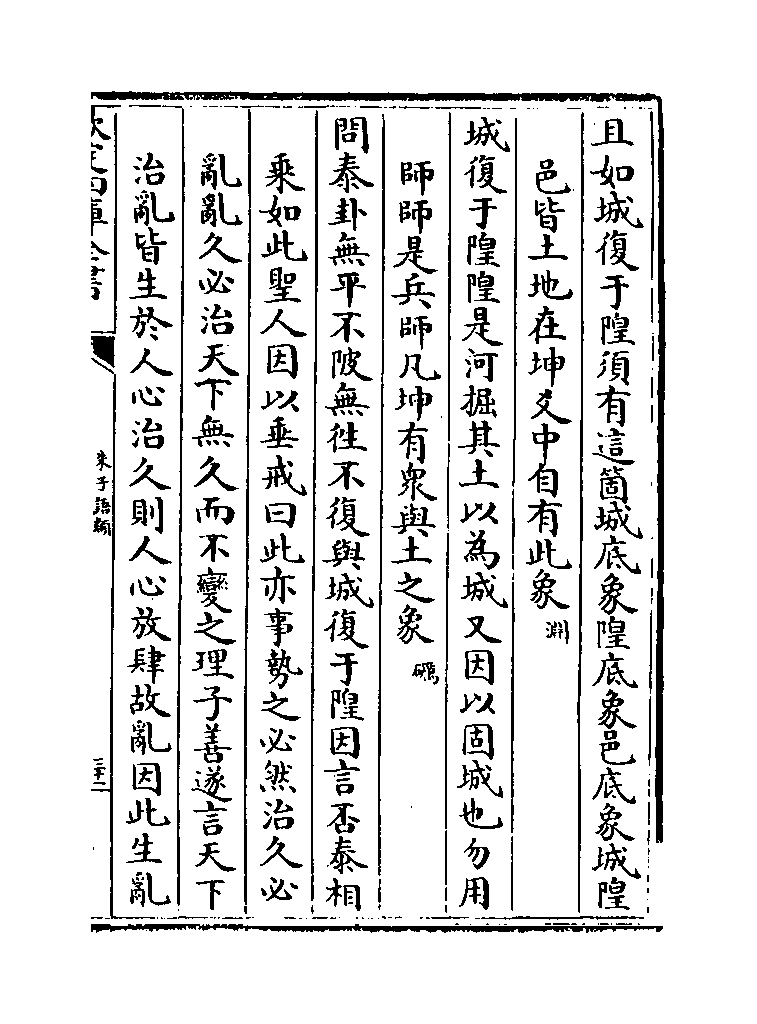 且如城復于隍須有這箇城底象隍底象邑底象城隍
邑皆土地在坤爻中自有此象淵
城復于隍隍是河掘其土以為城又因以固城也勿用
師師是兵師凡坤有衆與土之象㽦
問泰卦無平不陂無徃不復與城復于隍因言否泰相
乘如此聖人因以垂戒曰此亦事勢之必然治久必
亂亂久必治天下無久而不變之理子善遂言天下
治亂皆生於人心治久則人心放肆故亂因此生亂
欽定四庫全書
朱子語類
三十二